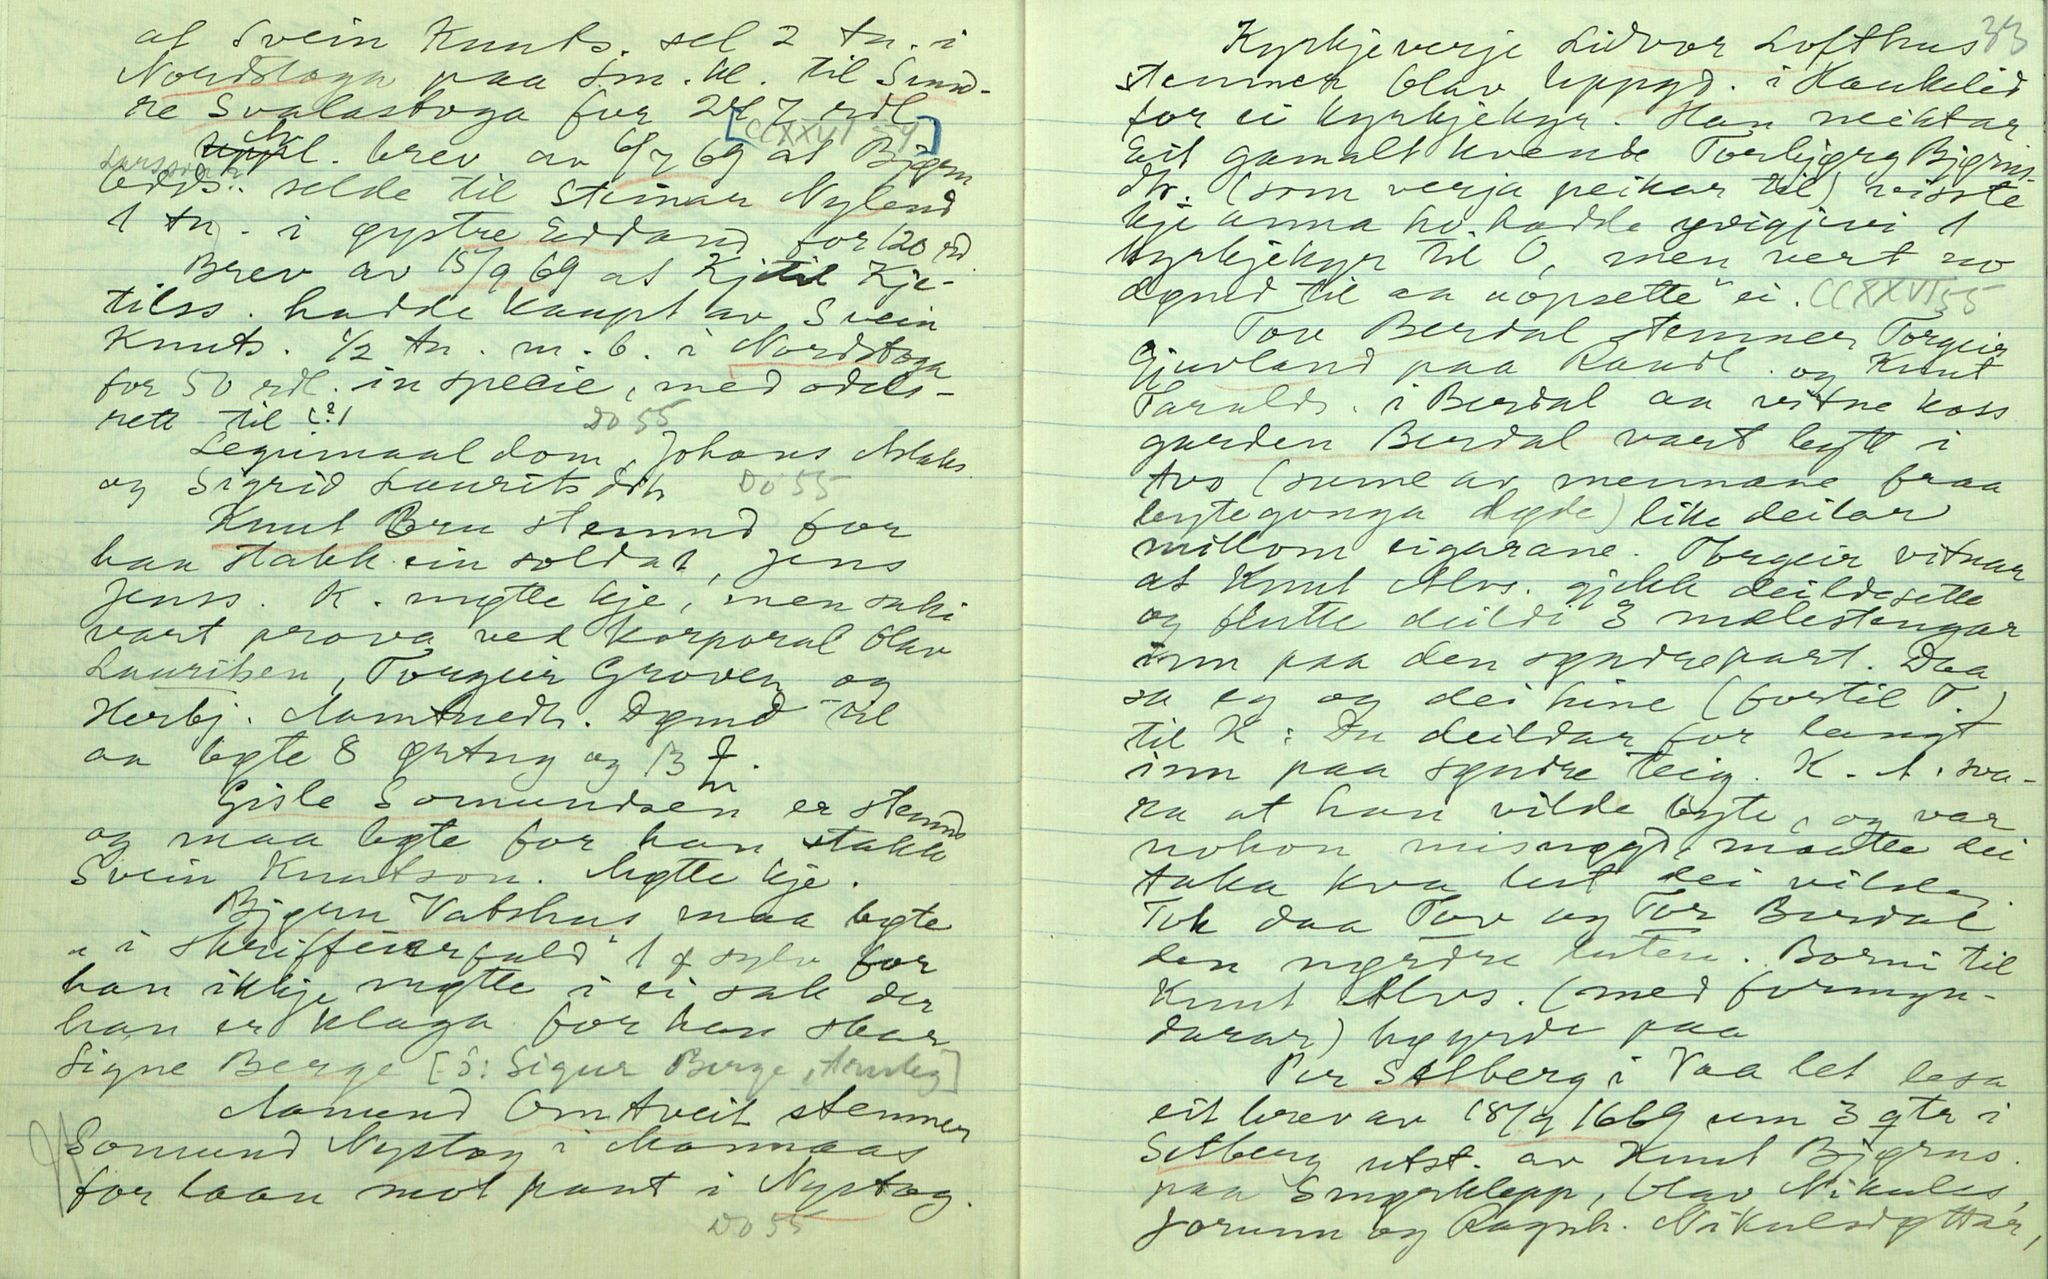 at Svein Knuts. sel 2 tn. i
Nordstoga paa Sm. kl. til Sund-
re Svalastoga for 24 7 rdl
[CCXXVI 54]
kl. brev av 6/7 69 at Bjørn
Larsson
Odds. selde til Steinar Nylend
1 tn. i øystre Eddand for 120 rd.
Brev av 15/9 69 at Kjetil Kje-
tilss. hadde kaupt av Svein
Knuts. 1/2 tn. m. b. i Nordstoga
for 50 rdl. in specie, med odels-
rett til (?)
Do 55
Legermaal dom, Johans Aslaks
og Sigrid Laurits dtr Do 55
Knut Bru stemnd for
han stakk ein soldat, Jens
Jenss. K. møtte kje, men saki
vart prova ved korporal Olav
Lauritsen, Torgeir Groven og
Herbj. Aamundsdtr. Dømd til
aa bøte 8 ørtug og 13
Gisle Somundsen er stemnd
og maa bøte for han stakk
Svein Knutson. Møtte kje.
Bjørn Vatshus maa bøte
"i skriftierfald" 1 sylv for
han ikkje møtte i ei sak der
han er klaga for han skar
Signe Berge [ɔ: Sigur Berge, Arnstg]
Aamund Omtveit stemner
Somund Nystog i Aamaas
for laan mot pant i Nystog.
Do 55
33
Kyrkjeverje Lidvor Lofthus
stemner Olav Uppgd. i Haukelid
for ei kyrkjekyr. Han neiktar
Eit gamalt kvende Torbjørg Bjørns-
dtr. (som verja peikar til) visste
kje anna ho hadde yvigjevi 1
kyrkjekyr til O, men vert no
dømd til aa "opsette" ei. CCXXVI 55
Tov Berdal stemner Torgeir
Gjuvland paa Raudl. og Knut
Taralds. i Berdal aa vitne koss
garden Berdal vart bytt i
tvo (sume av mennane fraa
bytegonga døde) like deilar
millom eigarane. Torgeir vitnar
at Knut Alvs. gjekk deildesette
og flutte deildi 3 mælestengar
inn paa den søndre part. Daa
sa eg og dei hine (fortil T.)
til K: Du deildar for langt
inn paa søndre teig. K. A. sva-
ra at han vilde byte, og var
nokon misnøgd, maatte dei
taka kva lut dei vilde.
Tok daa Tov og Tor Berdal
den nørdre luten. Borni til
Knut Alvs. (med formyn-
darar) høyrde paa
Per Selberg i Vaa let lesa
eit brev av 18/9 1669 um 3 gtr i
Setberg utst. av Knut Bjørns.
paa Smørklepp, Olav Nikuls,
Jorunn og Ragnh. Nikulsdøttar,